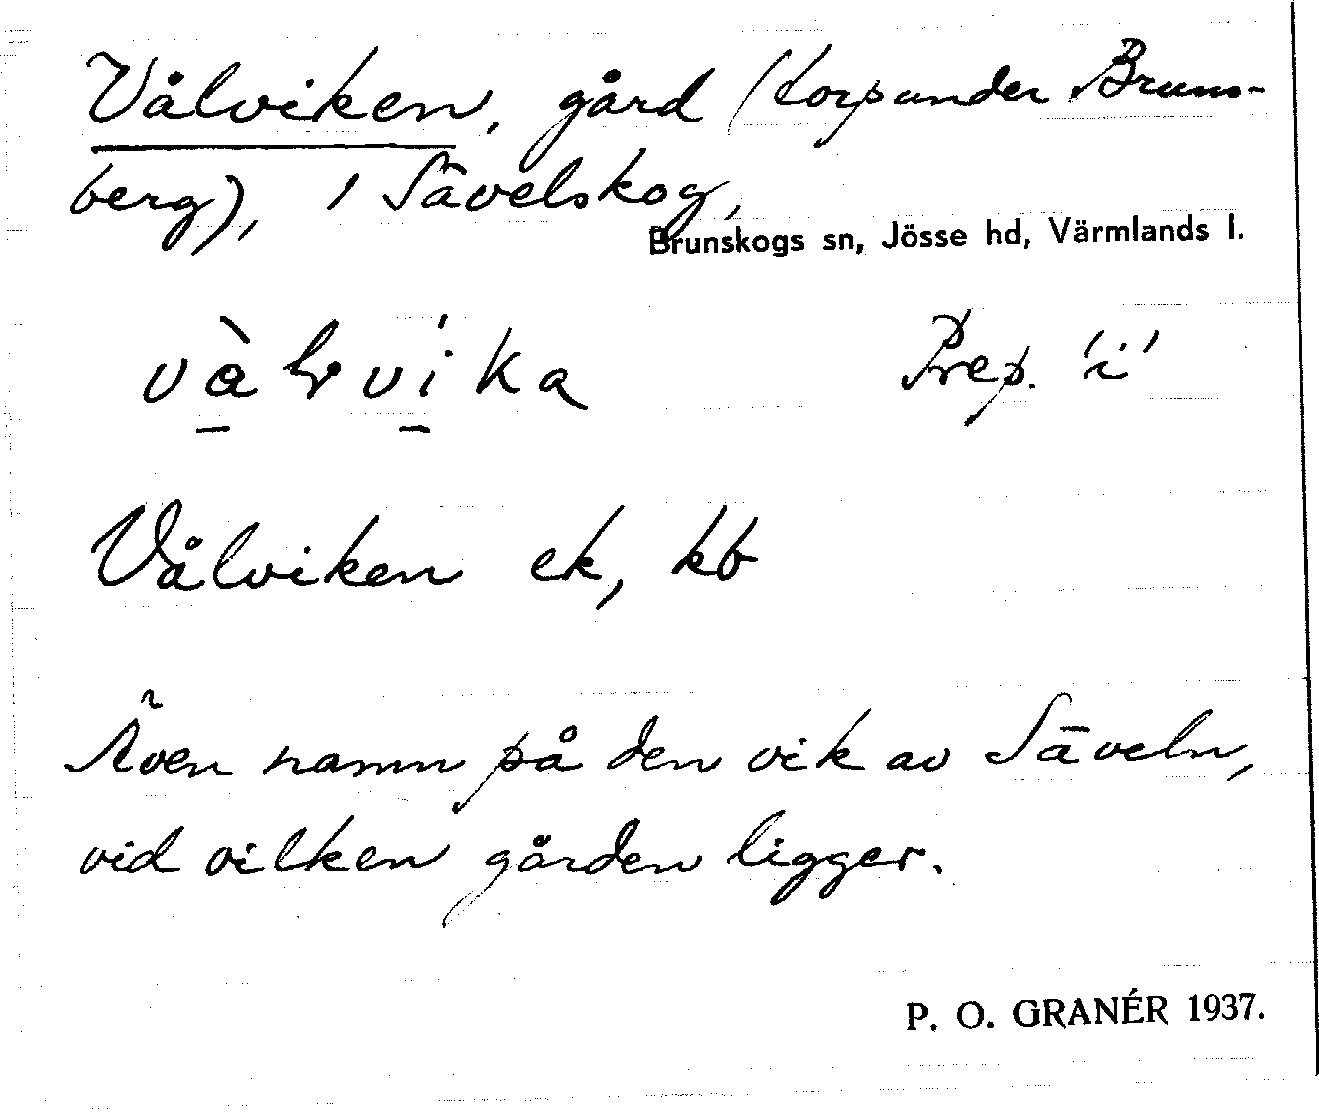 Vålviken, gård (torp under Bruns-
berg), i Sävelskog,
Brunskogs sn, Jösse hd, Värmlands l.
Prep. 'i'
Vålviken ek, kb
Även namn på den vik av Säveln,
vid vilken gården ligger.
P. O. GRANÉR 1937.